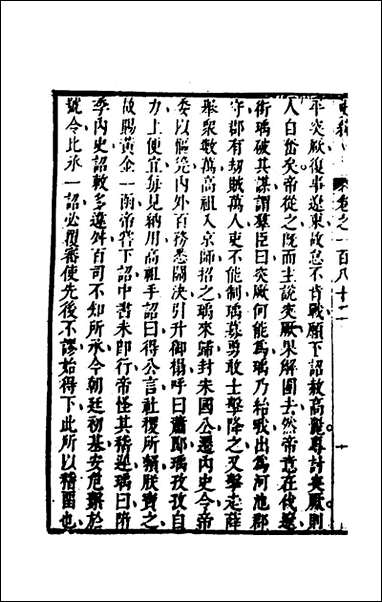 卷之一百八十二 十
平突厥復事遼東故怠不肯戰願下詔赦高麗專討突厥則
人自奮矣帝從之既而主說突厥果解圍去然帝意在伐遼
銜瑀破其謀謂羣臣曰突厥何能爲瑀乃紿我出爲河池郡
守郡有劫賊萬人吏不能制瑀募勇敢士擊降之又擊走薛
舉衆數萬高祖入京師招之瑀來歸封宋國公遷内史令帝
委以樞筦内外百務悉關決引升御榻呼曰蕭郎瑀孜孜自
力上便宜每見納用高祖手詔曰得公言社稷所賴朕寶之
故賜黄金一函帝嘗下詔中書未即行帝怪其稽遲瑀曰隋
季内史詔敕多違舛百司不知所承今朝廷初基安危繫於
號令比承一詔必覆審使先後不謬始得下此所以稽留也